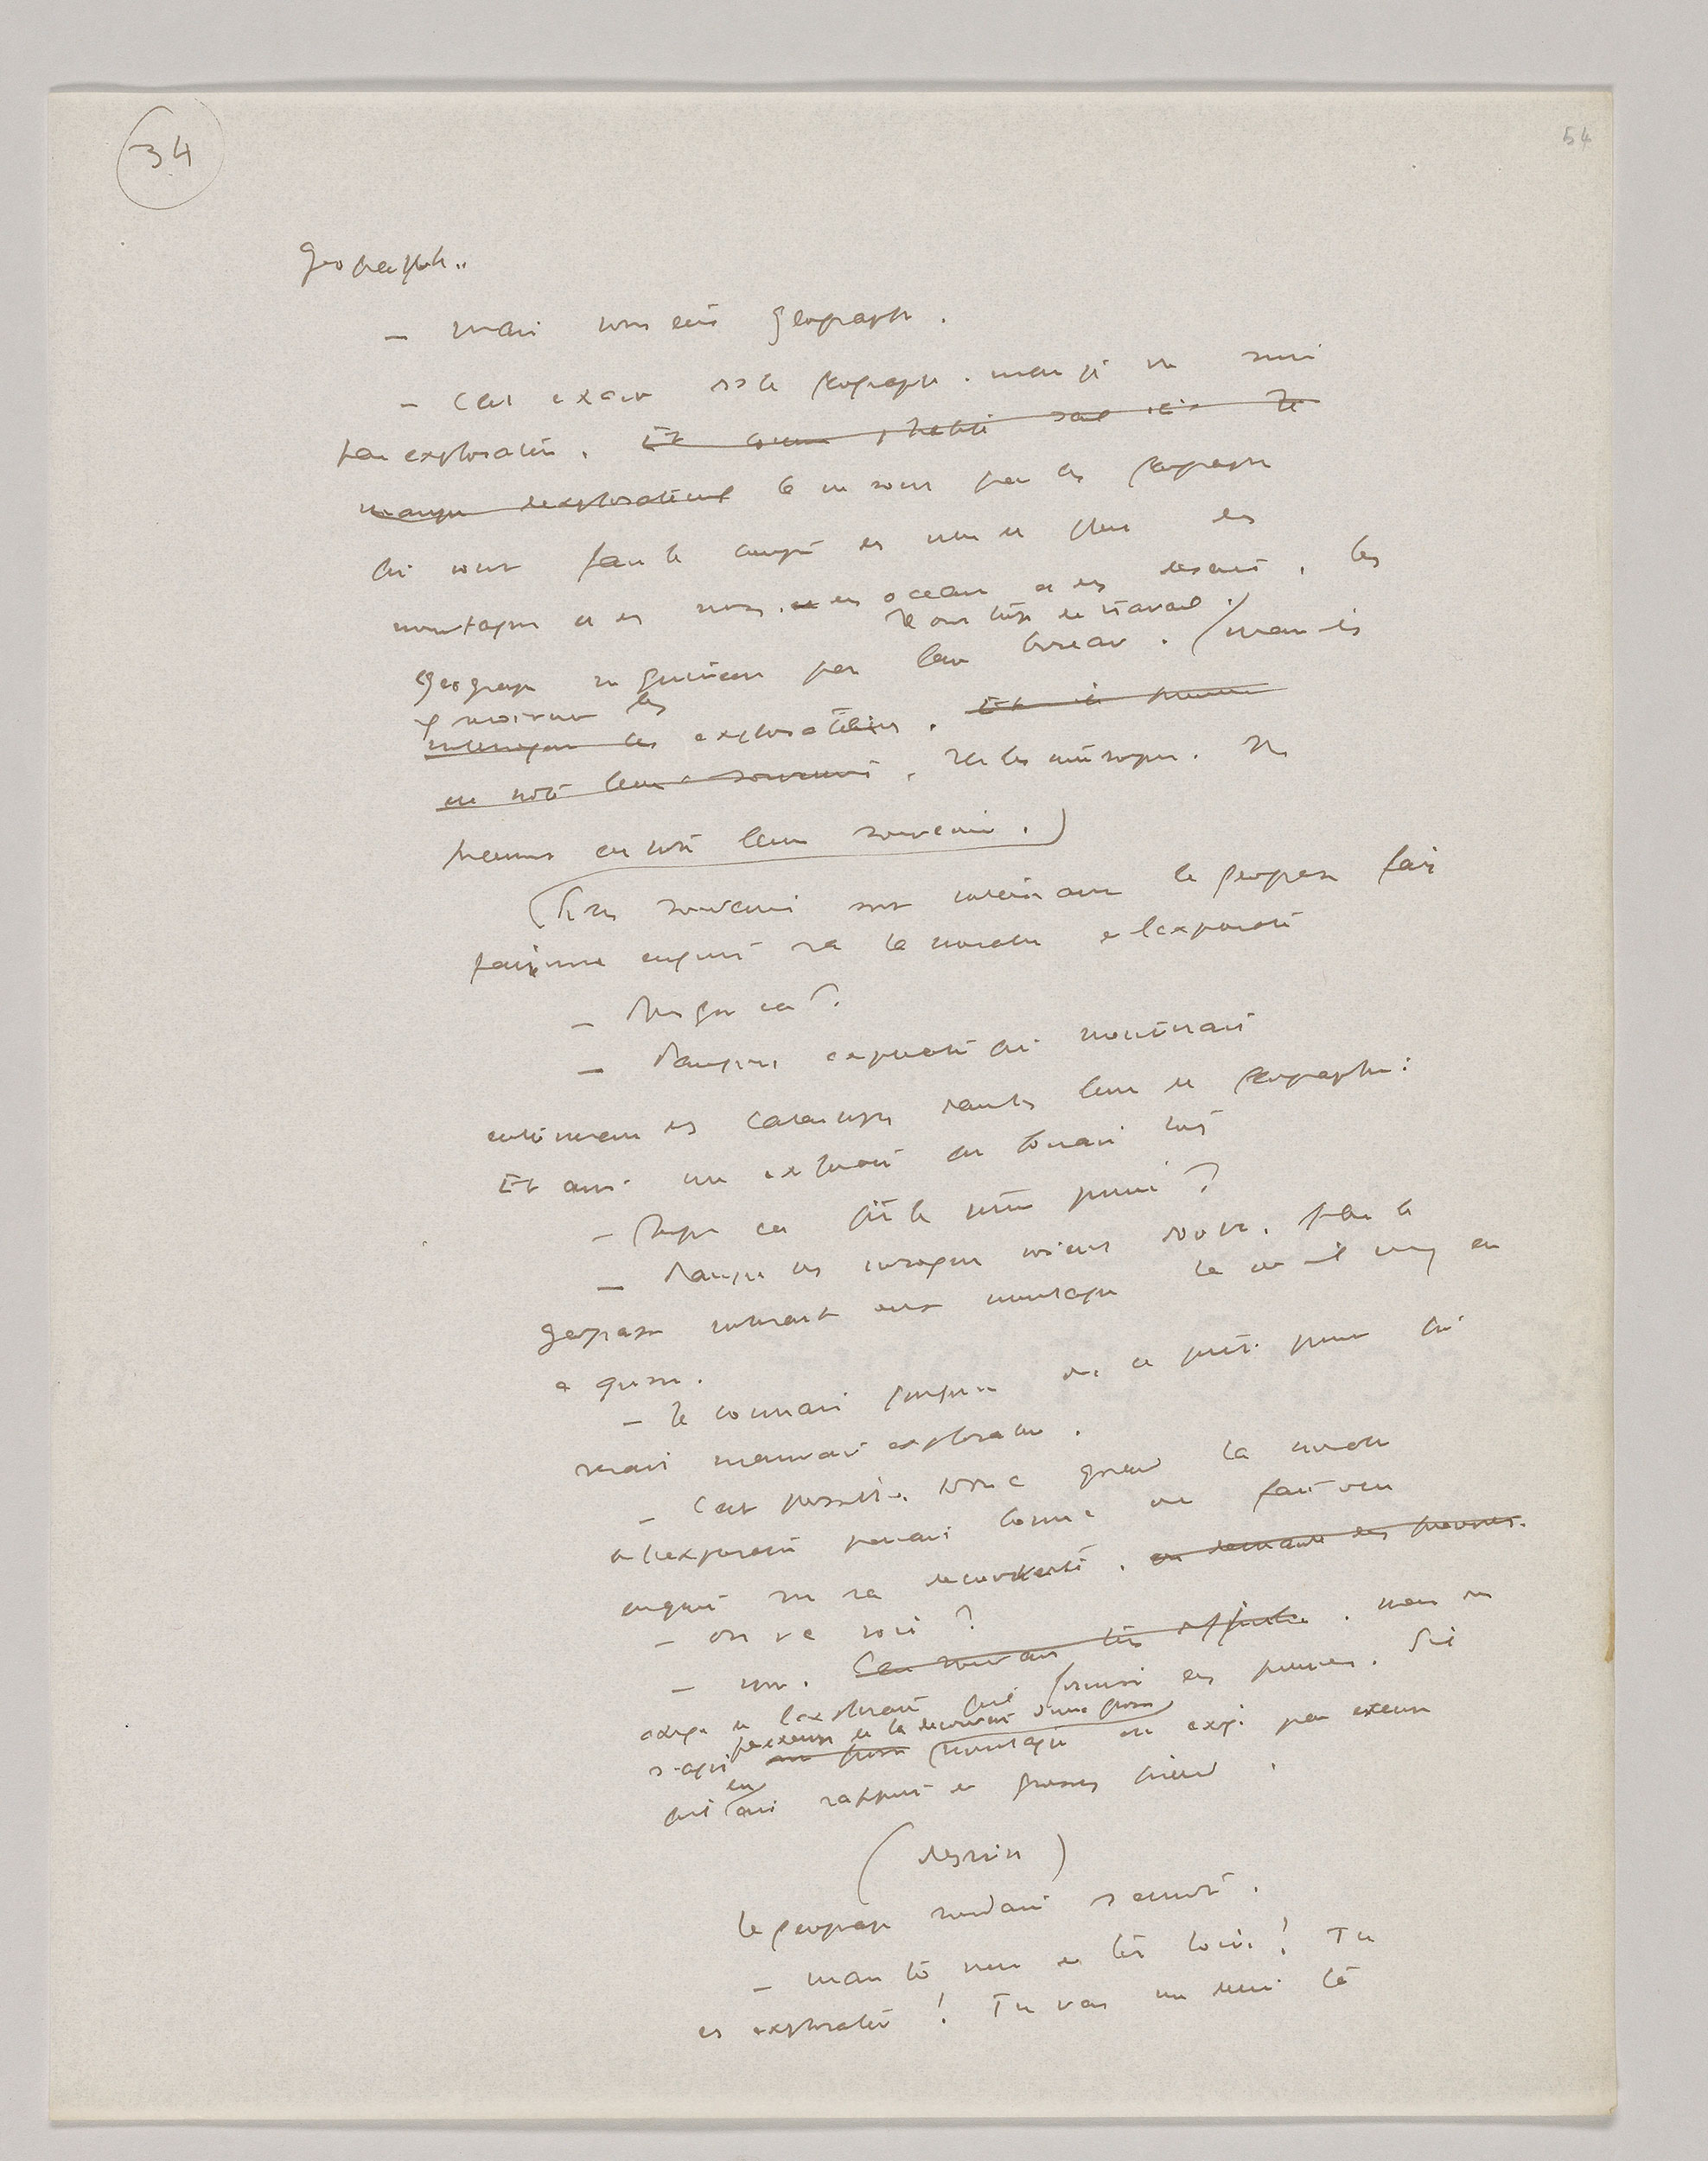 34
54
géographe..
– Mais vous êtes géographe.
– C'est exact dit le géographe. mais je ne suis
pas explorateur. Et comme j'habite seul ici je
manque d'explorateurs Ce ne sont pas les géographes
qui vont faire le compte des villes et fleuves des
montagnes et des mers, et des océans et des déserts, les
Ils ont trop de travail.
géographes ne quittent pas leur bureau. (mais ils
y reçoivent les
interrogent les explorateurs. Et ils prennent
en note leurs souvenirs, et les interrogent. Ils
prennent en note leurs souvenirs.)
(Si les souvenirs sont intéressants le géographe fait
faire une enquête sur la moralité de l'explorateur
– Pourquoi ça ?
– Parce qu'un explorateur qui mentirait
entraînerait des catastrophes dans les livres de géographie:
Et aussi un explorateur qui boirait trop
– Pourquoi ça fit le petit prince ?
– Parce que les ivrognes voient double. Alors le
géographe noterait deux montagnes là où il n'y en
a qu'une.
– Je connais quelqu'un dit le petit prince qui
serait mauvais explorateur.
– C'est possible. Donc quand la moralité
de l'explorateur paraît bonne on fait une
enquête sur sa découverte. on demande des preuves.
– On va voir ?
– non. C'est souvent très difficile. mais on
exige de l'explorateur qu'il fournisse des preuves. S'il
par exemple de la découverte d'une grosse
s'agit d'une grosse montagne on exige par exemple
en
qu'il ait rapporté de grosses pierres.
(dessin)
le géographe soudain s'émut.
– mais toi tu viens de très loin ! Tu
es explorateur ! Tu vas me décrire ta